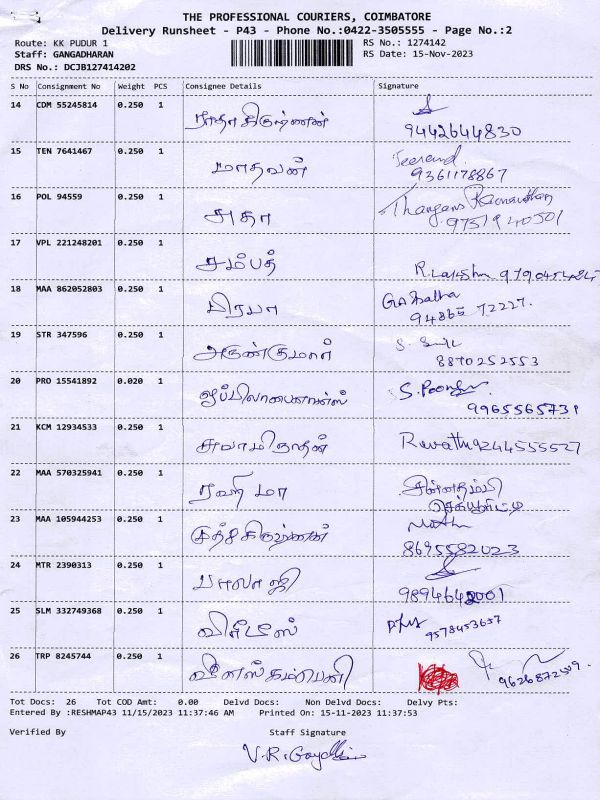 THE PROFESSIONAL COURIERS, COIMBATORE
Delivery Runsheet - P43 - Phone No.:0422-3505555 - Page No.:2
Route: KK PUDUR 1 RS No.: 1274142
Staff: GANGADHARAN RS Date: 15-Nov-2023
DRS No.: DCJB127414202
S No Consignment No Weight PCS Consignee Details Signature
14 CDM 55245814 0.250 1 ராதாகிருஷ்ணன்
9442644830
15 TEN 7641467 0.250 1 மாதவன்
9361178867
16 POL 94559 0.250 1 அதா
9751940501
17 VPL 221248201 0.250 1 சம்பத்
R.Lakshm
18 MAA 862052803 0.250 1 பிரபா
94865 72227.
19 STR 347596 0.250 1 அருண்குமார்
8870252553
20 PRO 15541892 0.020 1
9965565731
21 KCM 12934533 0.250 1 சுவாமிநாதன் 9244555527
22 MAA 570325941 0.250 1 சின்னதம்பி
செக்யூரிட்டி
23 MAA 105944253 0.250 1
8695582023
24 MTR 2390313 0.250 1 பாலாஜி
9894642001
25 SLM 332749368 0.250 1
9578453657
26 TRP 8245744 0.250 1 வீனஸ் கம்பெனி
9626872509.
Tot Docs: 26 Tot COD Amt: 0.00 Delvd Docs: Non Delvd Docs: Delvy Pts:
Entered By :RESHMAP43 11/15/2023 11:37:46 AM Printed On: 15-11-2023 11:37:53
Verified By Staff Signature